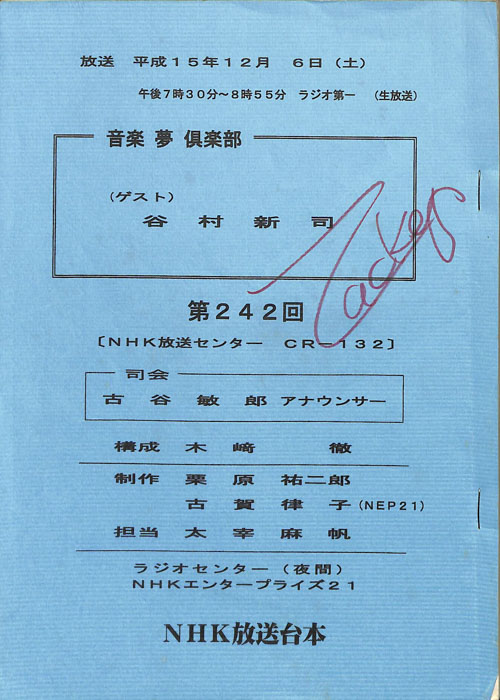 放送 平成15年12月 6日（土）
午後7時30分～8時55分 ラジオ第一 （生放送）
音楽 夢 倶楽部
（ゲスト）
谷 村 新 司
第242回
〔NHK放送センター CR-132〕
司会
古 谷 敏 郎 アナウンサー
構成 木 﨑 徹
制作 栗 原 祐二郎
古 賀 律 子（NEP21）
担当 太 宰 麻 帆
ラジオセンター（夜間）
NHKエンタープライズ21
NHK放送台本